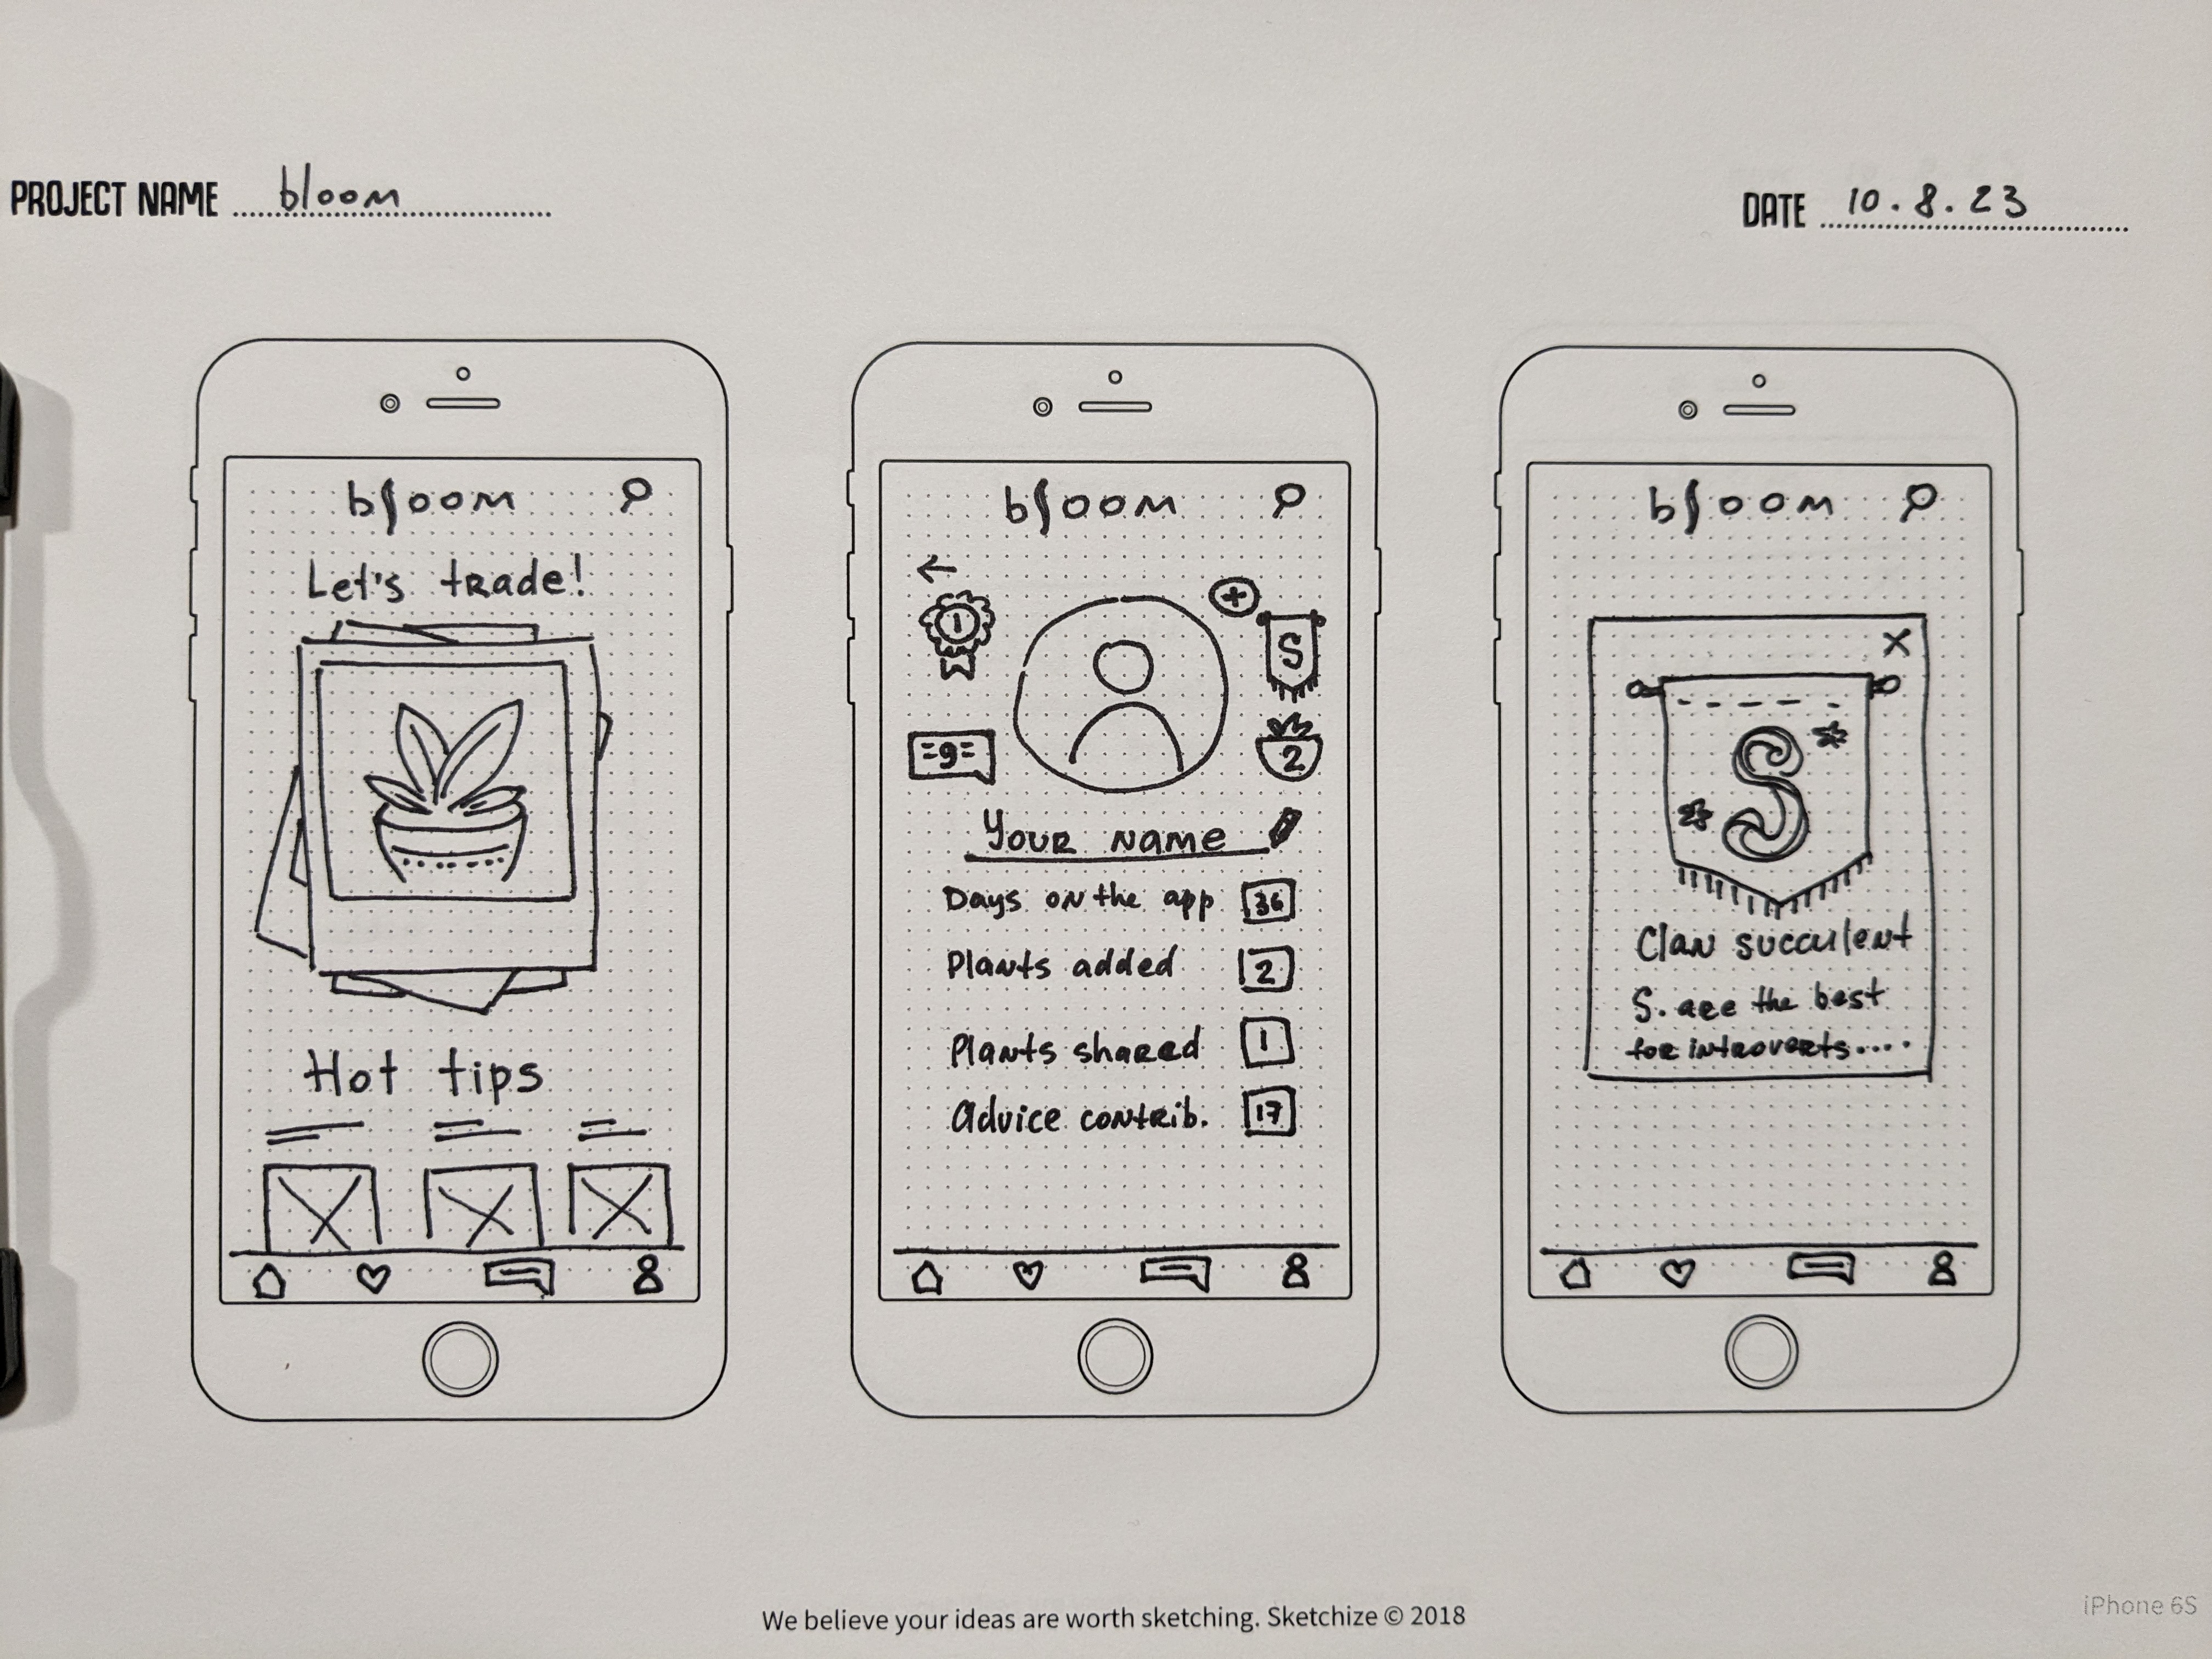 PROJECT NAME bloom
DATE 10.8.23
bloom
Let's trade!
Hot tips
bloom
1
S
=9=
2
Your name
Days on the app 36
Plants added 2
Plants shared 1
Advice contrib. 17
bloom
X
S
Clan succulent
S. are the best
for introverts....
We believe your ideas are worth sketching. Sketchize © 2018
iPhone 6S